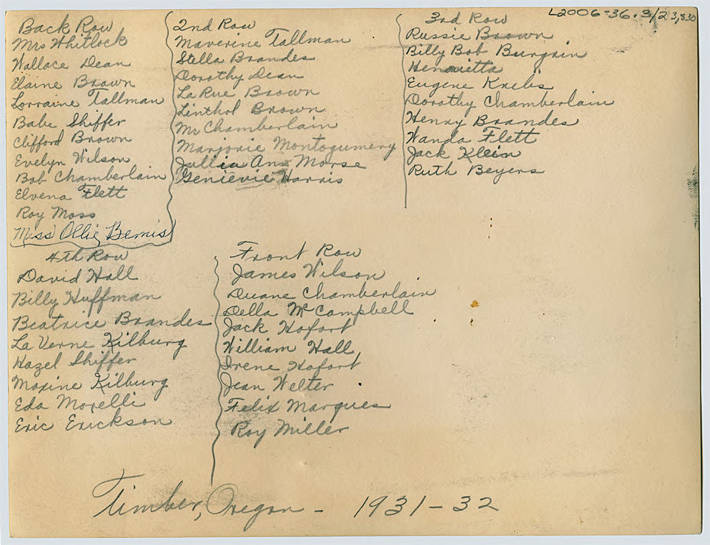 Back Row
Mrs Whitlock
Wallace Dean
Elaine Brown
Lorraine Tallman
Babe Shiffer
Clifford Brown
Evelyn Wilson
Bob Chamberlain
Elvena Flett
Roy Moss
Miss Ollie Bemis
2nd Row
Maverine Tallman
Stella Brandes
Dorothy Dean
La Rue Brown
Linthol Brown
Mr Chamberlain
Marjorie Montogumery
Jullia Ann Morse
Genievie Harris
3rd Row
Russie Brown
Billy Bob Burgoin
Henrietta
Eugene Krebs
Dorothy Chamberlain
Henry Brandes
Wanda Flett
Jack Klein
Ruth Beyers
L2006-36.3/2 3,830
4th Row
David Hall
Billy Huffman
Beatrice Brandes
La Verne Kilburg
Hazel Shiffer
Maxine Kilburg
Eda Morelli
Eric Erickson
Front Row
James Wilson
Duane Chamberlain
Della McCampbell
Jack Hofort
William Hall
Irene Hofort
Jean Welter
Felix Marques
Roy Miller
Timber, Oregon - 1931-32